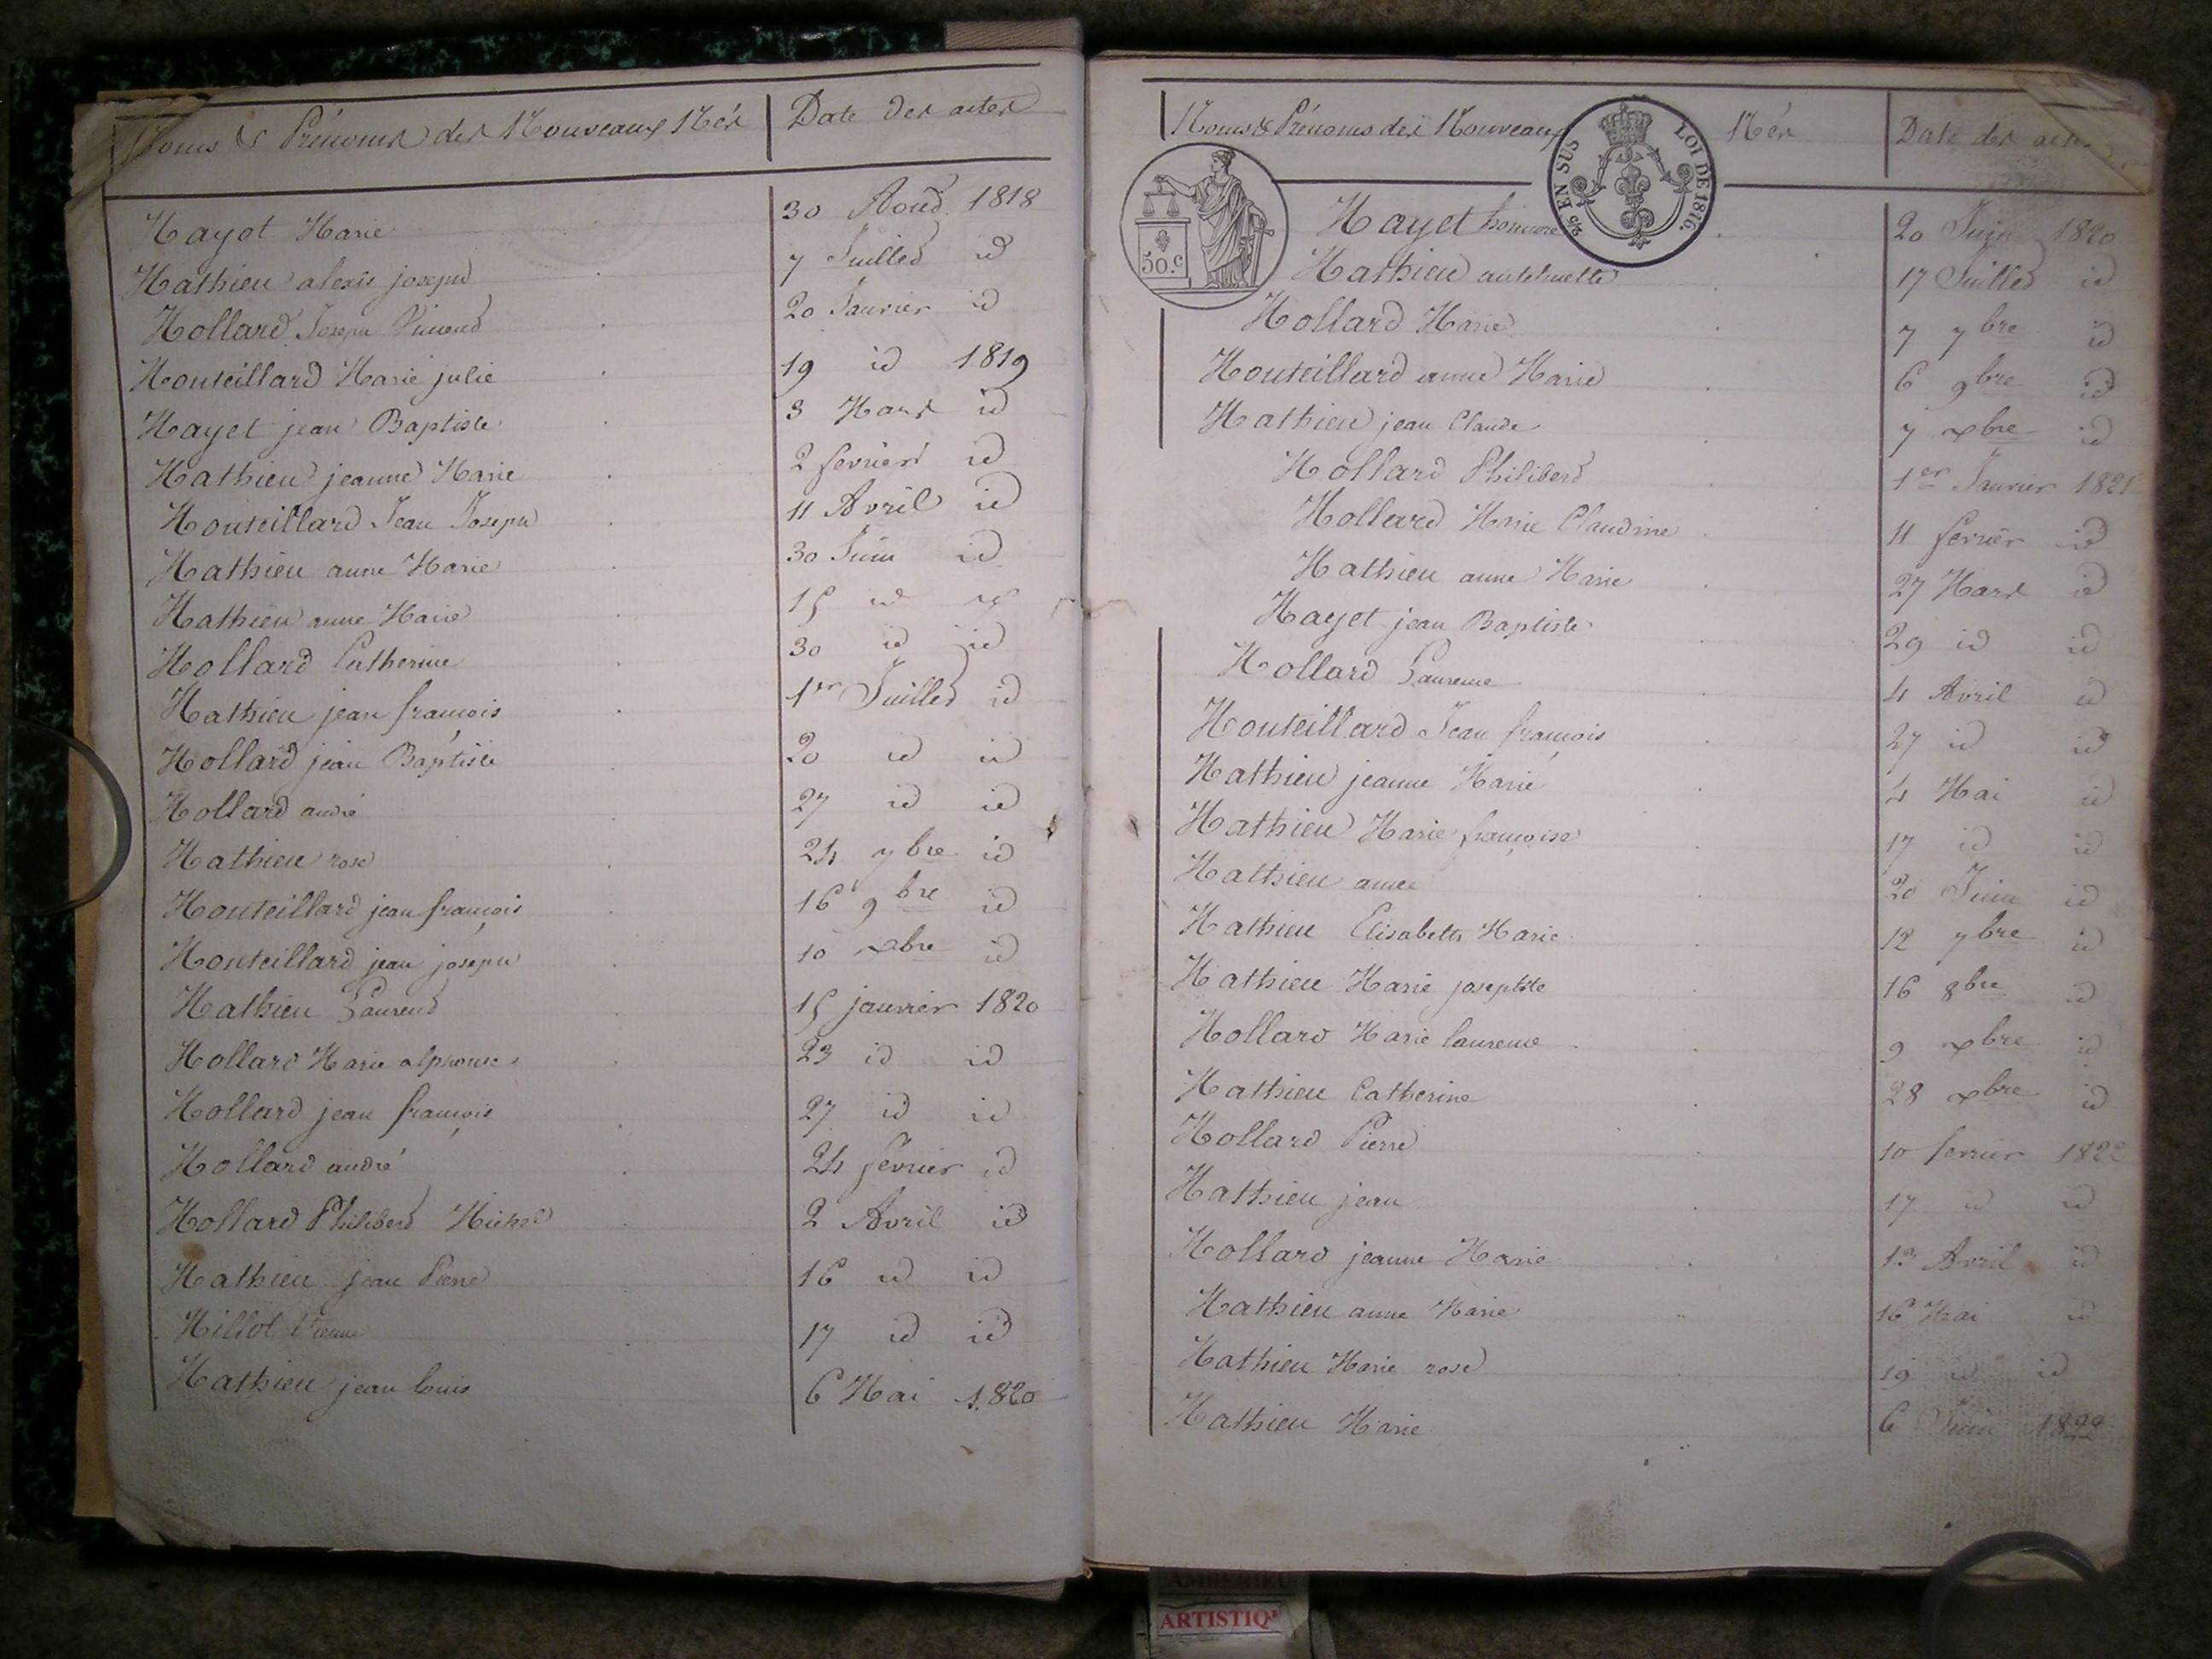 Noms & Prénoms des Nouveaux Nés | Date des actes
Mayot Marie 30 Aout 1818
Mathieu alexis joseph 7 Juillet id
Mollard Joseph Vincent 20 Janvier id
Monteillard Marie julie 19 id 1819
Mayet jean Baptiste 3 Mars id
Mathieu jeanne Marie 2 fevrier id
Monteillard Jean Joseph 11 Avril id
Mathieu anne Marie 30 Juin id
Mathieu anne Marie 15 id id
Mollard Catherine 30 id id
Mathieu jean françois 1er Juillet id
Mollard jean Baptiste 20 id id
Mollard andré 27 id id
Mathieu rose 24 7bre id
Monteillard jean françois 16 9bre id
Monteillard jean joseph 10 xbre id
Mathieu Laurent 15 janvier 1820
Mollard Marie alphonse 23 id id
Mollard jean françois 27 id id
Mollard andré 24 fevrier id
Mollard Philibert Michel 2 Avril id
Mathieu jean Pierre 16 id id
Millot 17 id id
Mathieu jean louis 6 Mai 1820
Noms & Prénoms des Nouveaux Nés | Date des actes
EN SUS LOI DE 1816.
50.c
Mayet 20 Juin 1820
Mathieu 17 Juillet id
Mollard Marie 7 7bre id
Monteillard anne Marie 6 9bre id
Mathieu jean Claude 7 xbre id
Mollard Philibert 1er Janvier 1821
Mollard Marie Claudine 11 fevrier id
Mathieu anne Marie 27 Mars id
Mayet jean Baptiste 29 id id
Mollard Laurence 4 Avril id
Monteillard Jean françois 27 id id
Mathieu jeanne Marie 4 Mai id
Mathieu Marie françoise 17 id id
Mathieu anne 20 Juin id
Mathieu Elisabeth Marie 12 7bre id
Mathieu Marie josephte 16 8bre id
Mollard Marie laurence 9 xbre id
Mathieu Catherine 28 xbre id
Mollard Pierre 10 fevrier 1822
Mathieu jean 17 id id
Mollard jeanne Marie 13 Avril id
Mathieu anne Marie 16 Mai id
Mathieu Marie rose 19 id id
Mathieu Marie 6 Juin 1822
AMBERIEU
ARTISTIQ